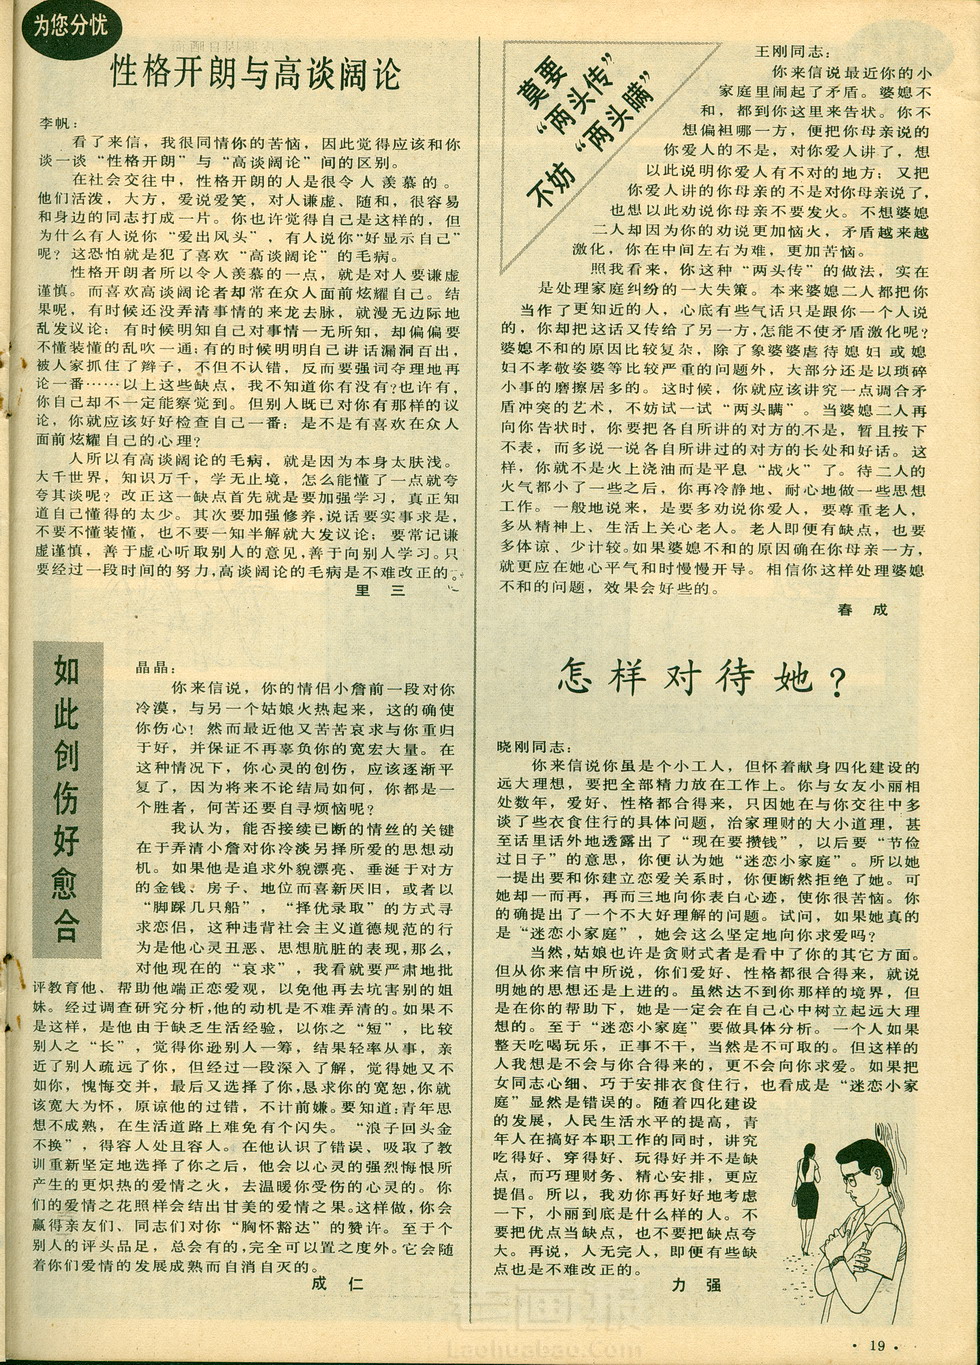 为您分忧
性格开朗与高谈阔论
李帆：
看了来信，我很同情你的苦恼，因此觉得应该和你
谈一谈“性格开朗”与“高谈阔论”间的区别。
在社会交往中，性格开朗的人是很令人羡慕的。
他们活泼，大方，爱说爱笑，对人谦虚、随和，很容易
和身边的同志打成一片。你也许觉得自己是这样的，但
为什么有人说你“爱出风头”，有人说你“好显示自己”
呢？这恐怕就是犯了喜欢“高谈阔论”的毛病。
性格开朗者所以令人羡慕的一点，就是对人要谦虚
谨慎。而喜欢高谈阔论者却常在众人面前炫耀自己。结
果呢，有时候还没弄清事情的来龙去脉，就漫无边际地
乱发议论；有时候明知自己对事情一无所知，却偏偏要
不懂装懂的乱吹一通；有的时候明明自己讲话漏洞百出，
被人家抓住了辫子，不但不认错，反而要强词夺理地再
论一番……以上这些缺点，我不知道你有没有？也许有，
你自己却不一定能察觉到。但别人既已对你有那样的议
论，你就应该好好检查自己一番：是不是有喜欢在众人
面前炫耀自己的心理？
人所以有高谈阔论的毛病，就是因为本身太肤浅。
大千世界，知识万千，学无止境，怎么能懂了一点就夸
夸其谈呢？改正这一缺点首先就是要加强学习，真正知
道自己懂得的太少。其次要加强修养，说话要实事求是，
不要不懂装懂，也不要一知半解就大发议论；要常记谦
虚谨慎，善于虚心听取别人的意见，善于向别人学习。只
要经过一段时间的努力，高谈阔论的毛病是不难改正的。
里三
莫要
“两头传”
不妨“两头瞒”
王刚同志：
你来信说最近你的小
家庭里闹起了矛盾。婆媳不
和，都到你这里来告状。你不
想偏袒哪一方，便把你母亲说的
你爱人的不是，对你爱人讲了，想
以此说明你爱人有不对的地方；又把
你爱人讲的你母亲的不是对你母亲说了，
也想以此劝说你母亲不要发火。不想婆媳
二人却因为你的劝说更加恼火，矛盾越来越
激化，你在中间左右为难，更加苦恼。
照我看来，你这种“两头传”的做法，实在
是处理家庭纠纷的一大失策。本来婆媳二人都把你
当作了更知近的人，心底有些气话只是跟你一个人说
的，你却把这话又传给了另一方，怎能不使矛盾激化呢？
婆媳不和的原因比较复杂，除了象婆婆虐待媳妇或媳
妇不孝敬婆婆等比较严重的问题外，大部分还是以琐碎
小事的磨擦居多的。这时候，你就应该讲究一点调合矛
盾冲突的艺术，不妨试一试“两头瞒”。当婆媳二人再
向你告状时，你要把各自所讲的对方的不是，暂且按下
不表，而多说一说各自所讲过的对方的长处和好话。这
样，你就不是火上浇油而是平息“战火”了。待二人的
火气都小了一些之后，你再冷静地、耐心地做一些思想
工作。一般地说来，是要多劝说你爱人，要尊重老人，
多从精神上、生活上关心老人。老人即便有缺点，也要
多体谅、少计较。如果婆媳不和的原因确在你母亲一方，
就更应在她心平气和时慢慢开导。相信你这样处理婆媳
不和的问题，效果会好些的。
春成
如此创伤好愈合
晶晶：
你来信说，你的情侣小詹前一段对你
冷漠，与另一个姑娘火热起来，这的确使
你伤心！然而最近他又苦苦哀求与你重归
于好，并保证不再辜负你的宽宏大量。在
这种情况下，你心灵的创伤，应该逐渐平
复了，因为将来不论结局如何，你都是一
个胜者，何苦还要自寻烦恼呢？
我认为，能否接续已断的情丝的关键
在于弄清小詹对你冷淡另择所爱的思想动
机。如果他是追求外貌漂亮、垂涎于对方
的金钱、房子、地位而喜新厌旧，或者以
“脚踩几只船”，“择优录取”的方式寻
求恋侣，这种违背社会主义道德规范的行
为是他心灵丑恶、思想肮脏的表现，那么，
对他现在的“哀求”，我看就要严肃地批
评教育他、帮助他端正恋爱观，以免他再去坑害别的姐
妹。经过调查研究分析，他的动机是不难弄清的。如果不
是这样，是他由于缺乏生活经验，以你之“短”，比较
别人之“长”，觉得你逊别人一筹，结果轻率从事，亲
近了别人疏远了你，但经过一段深入了解，觉得她又不
如你，愧悔交并，最后又选择了你，恳求你的宽恕，你就
该宽大为怀，原谅他的过错，不计前嫌。要知道：青年思
想不成熟，在生活道路上难免有个闪失。“浪子回头金
不换”，得容人处且容人。在他认识了错误、吸取了教
训重新坚定地选择了你之后，他会以心灵的强烈悔恨所
产生的更炽热的爱情之火，去温暖你受伤的心灵的。你
们的爱情之花照样会结出甘美的爱情之果。这样做，你会
赢得亲友们、同志们对你“胸怀豁达”的赞许。至于个
别人的评头品足，总会有的，完全可以置之度外。它会随
着你们爱情的发展成熟而自消自灭的。
成仁
怎样对待她？
晓刚同志：
你来信说你虽是个小工人，但怀着献身四化建设的
远大理想，要把全部精力放在工作上。你与女友小丽相
处数年，爱好、性格都合得来，只因她在与你交往中多
谈了些衣食住行的具体问题，治家理财的大小道理，甚
至话里话外地透露出了“现在要攒钱”，以后要“节俭
过日子”的意思，你便认为她“迷恋小家庭”。所以她
一提出要和你建立恋爱关系时，你便断然拒绝了她。可
她却一而再，再而三地向你表白心迹，使你很苦恼。你
的确提出了一个不大好理解的问题。试问，如果她真的
是“迷恋小家庭”，她会这么坚定地向你求爱吗？
当然，姑娘也许是贪财式者是看中了你的其它方面。
但从你来信中所说，你们爱好、性格都很合得来，就说
明她的思想还是上进的。虽然达不到你那样的境界，但
是在你的帮助下，她是一定会在自己心中树立起远大理
想的。至于“迷恋小家庭”要做具体分析。一个人如果
整天吃喝玩乐，正事不干，当然是不可取的。但这样的
人我想是不会与你合得来的，更不会向你求爱。如果把
女同志心细、巧于安排衣食住行，也看成是“迷恋小家
庭”显然是错误的。随着四化建设
的发展，人民生活水平的提高，青
年人在搞好本职工作的同时，讲究
吃得好、穿得好、玩得好并不是缺
点，而巧理财务、精心安排，更应
提倡。所以，我劝你再好好地考虑
一下，小丽到底是什么样的人。不
要把优点当缺点，也不要把缺点夸
大。再说，人无完人，即便有些缺
点也是不难改正的。
力强
老画报
Laohuabao.Com
·19·